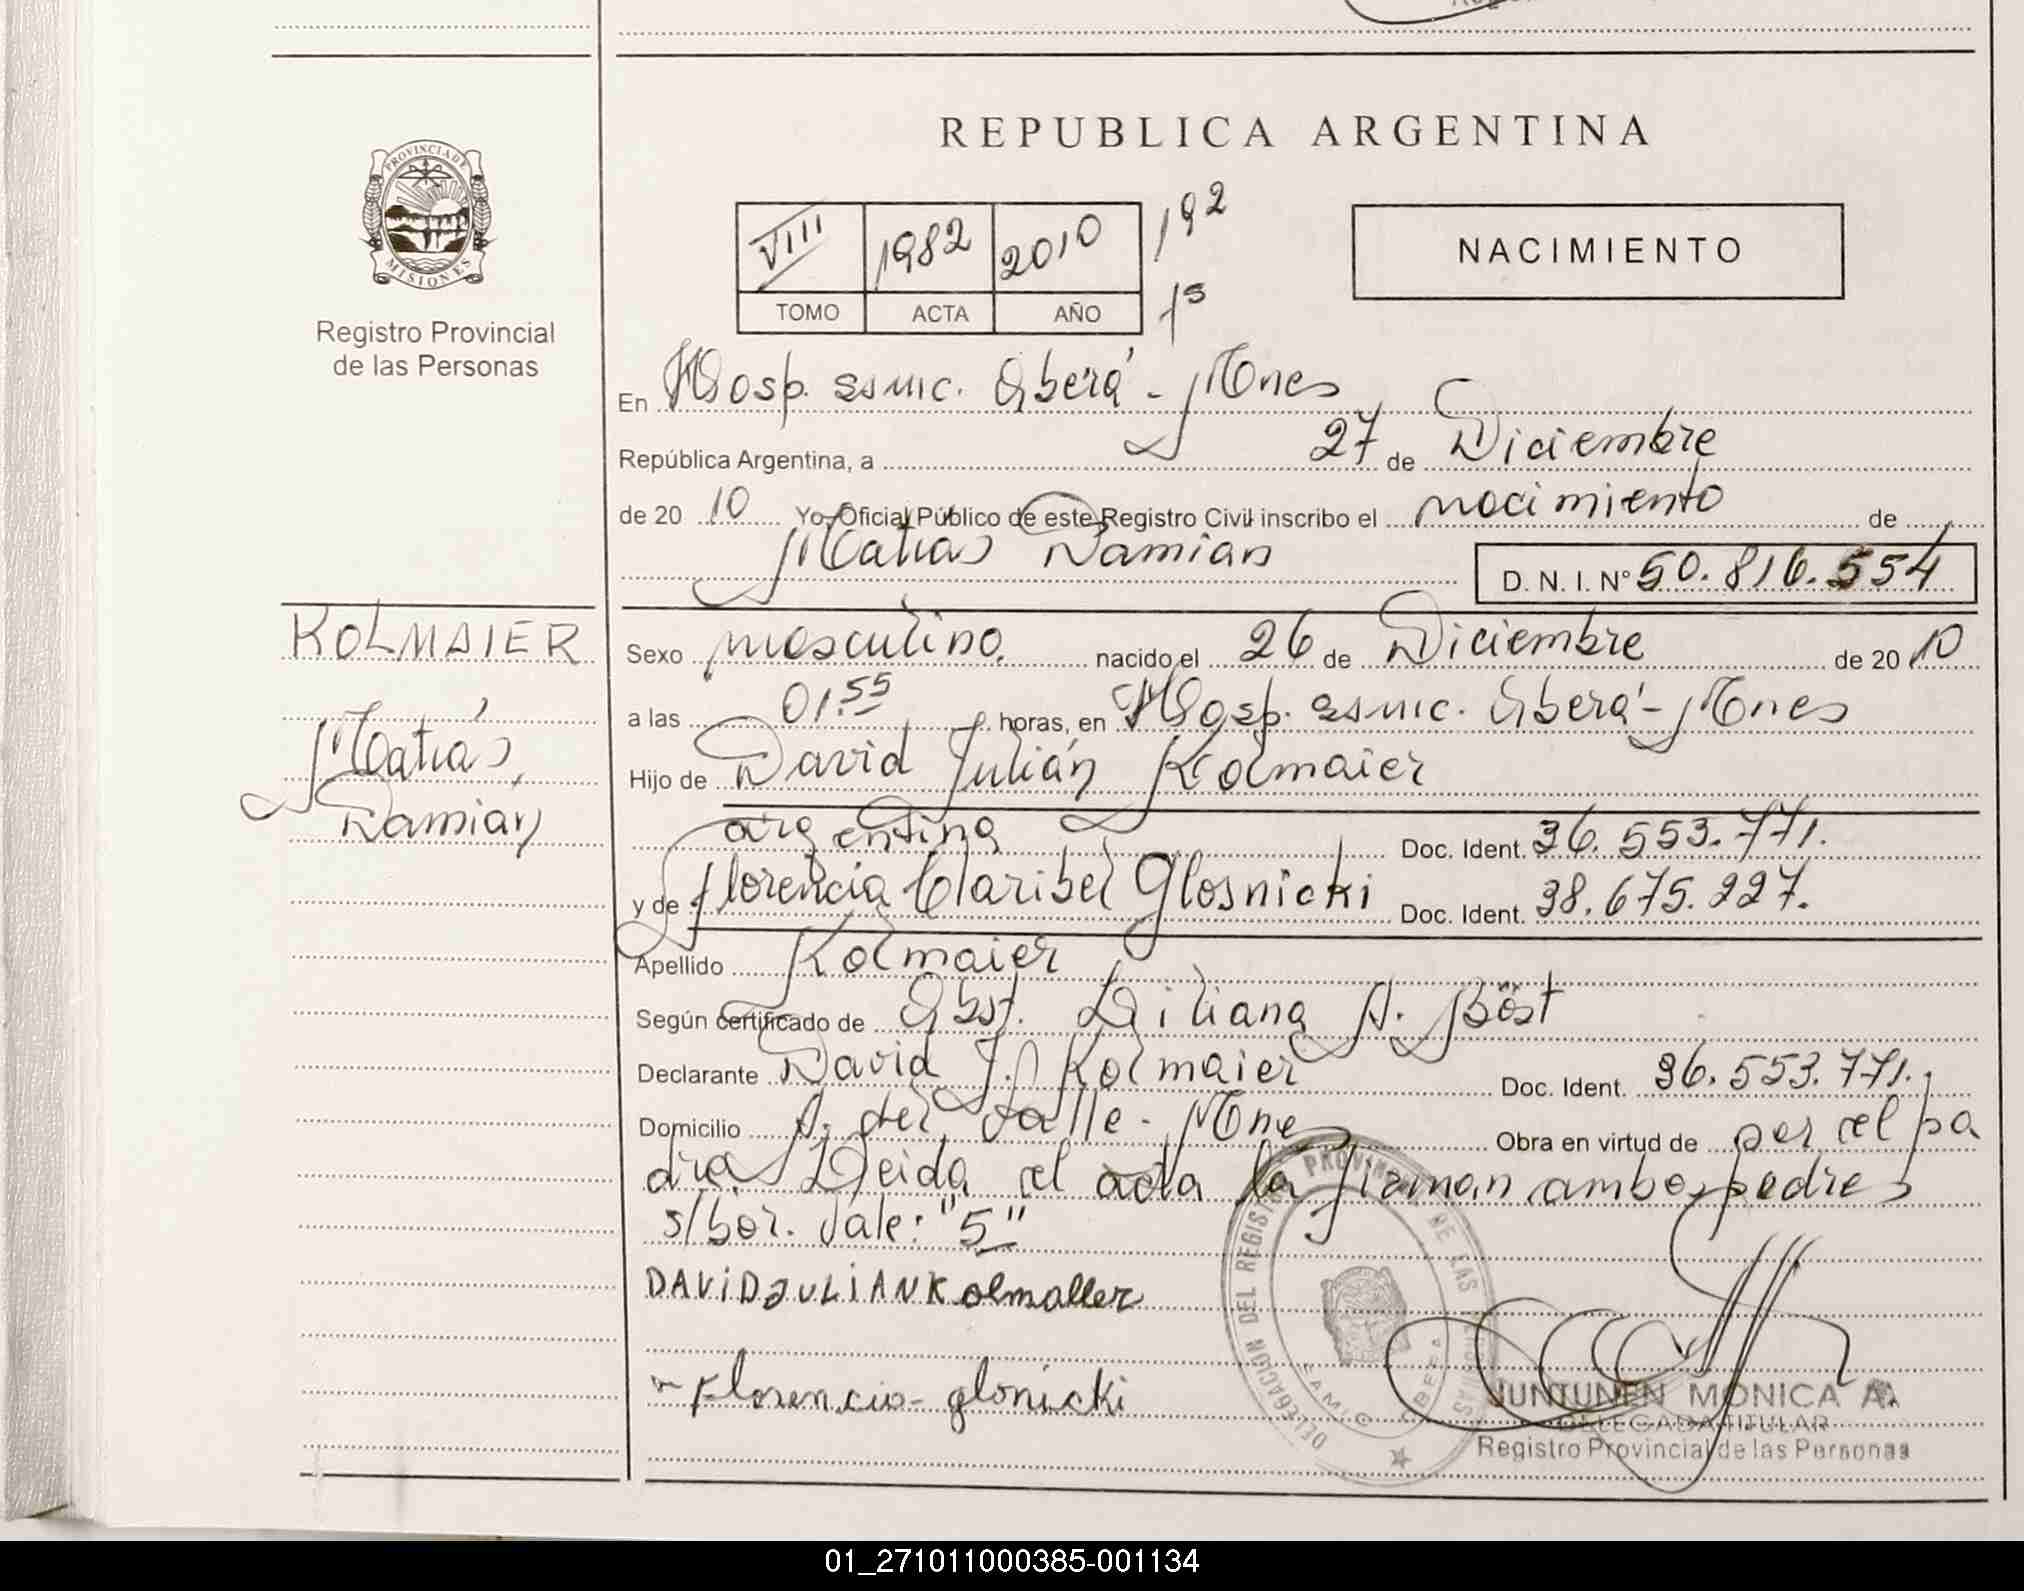 REPUBLICA ARGENTINA
PROVINCIA DE
MISIONES
Registro Provincial
de las Personas
VIII 1982 2010 192
TOMO ACTA AÑO 1s
NACIMIENTO
En Hosp. ssmic. Oberá - Mnes
República Argentina, a 27 de Diciembre
de 20 10 Yo, Oficial Público de este Registro Civil inscribo el nacimiento de
Matías Damian D. N. I. N° 50.816.554
KOLMAIER
Matiás
Damián
Sexo masculino. nacido el 26 de Diciembre de 20 10
a las 01.55 horas, en Hosp. ssmic. Oberá - Mnes
Hijo de David Julián Kolmaier
argentina Doc. Ident. 36.553.771.
y de Florencia Claribel Glosnicki Doc. Ident. 38.675.227.
Apellido Kolmaier
Según certificado de Obst. Liliana A. Böst
Declarante David J. Kolmaier Doc. Ident. 36.553.771.
Domicilio A. del Valle - Mnes Obra en virtud de ser el pa
dre. Leida el acta la firman ambos padres
s/bor. Vale: "5"
DAVID JULIAN Kolmaller
Florencia glonicki
DELEGACION DEL REGISTRO PROVINCIAL DE LAS PERSONAS
JUNTUNEN MONICA A.
DELEGADA TITULAR
Registro Provincial de las Personas
01_271011000385-001134